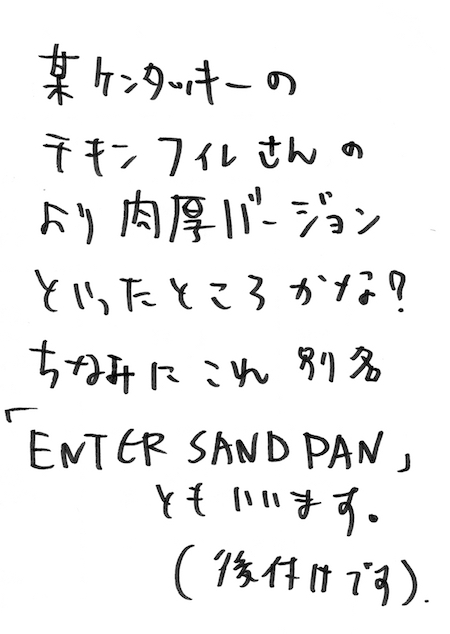 某ケンタッキーの
チキンフィレさんの
より肉厚バージョン
といったところかな?
ちなみにこれ別名
「ENTER SAND PAN」
ともいいます。
(後付けです).